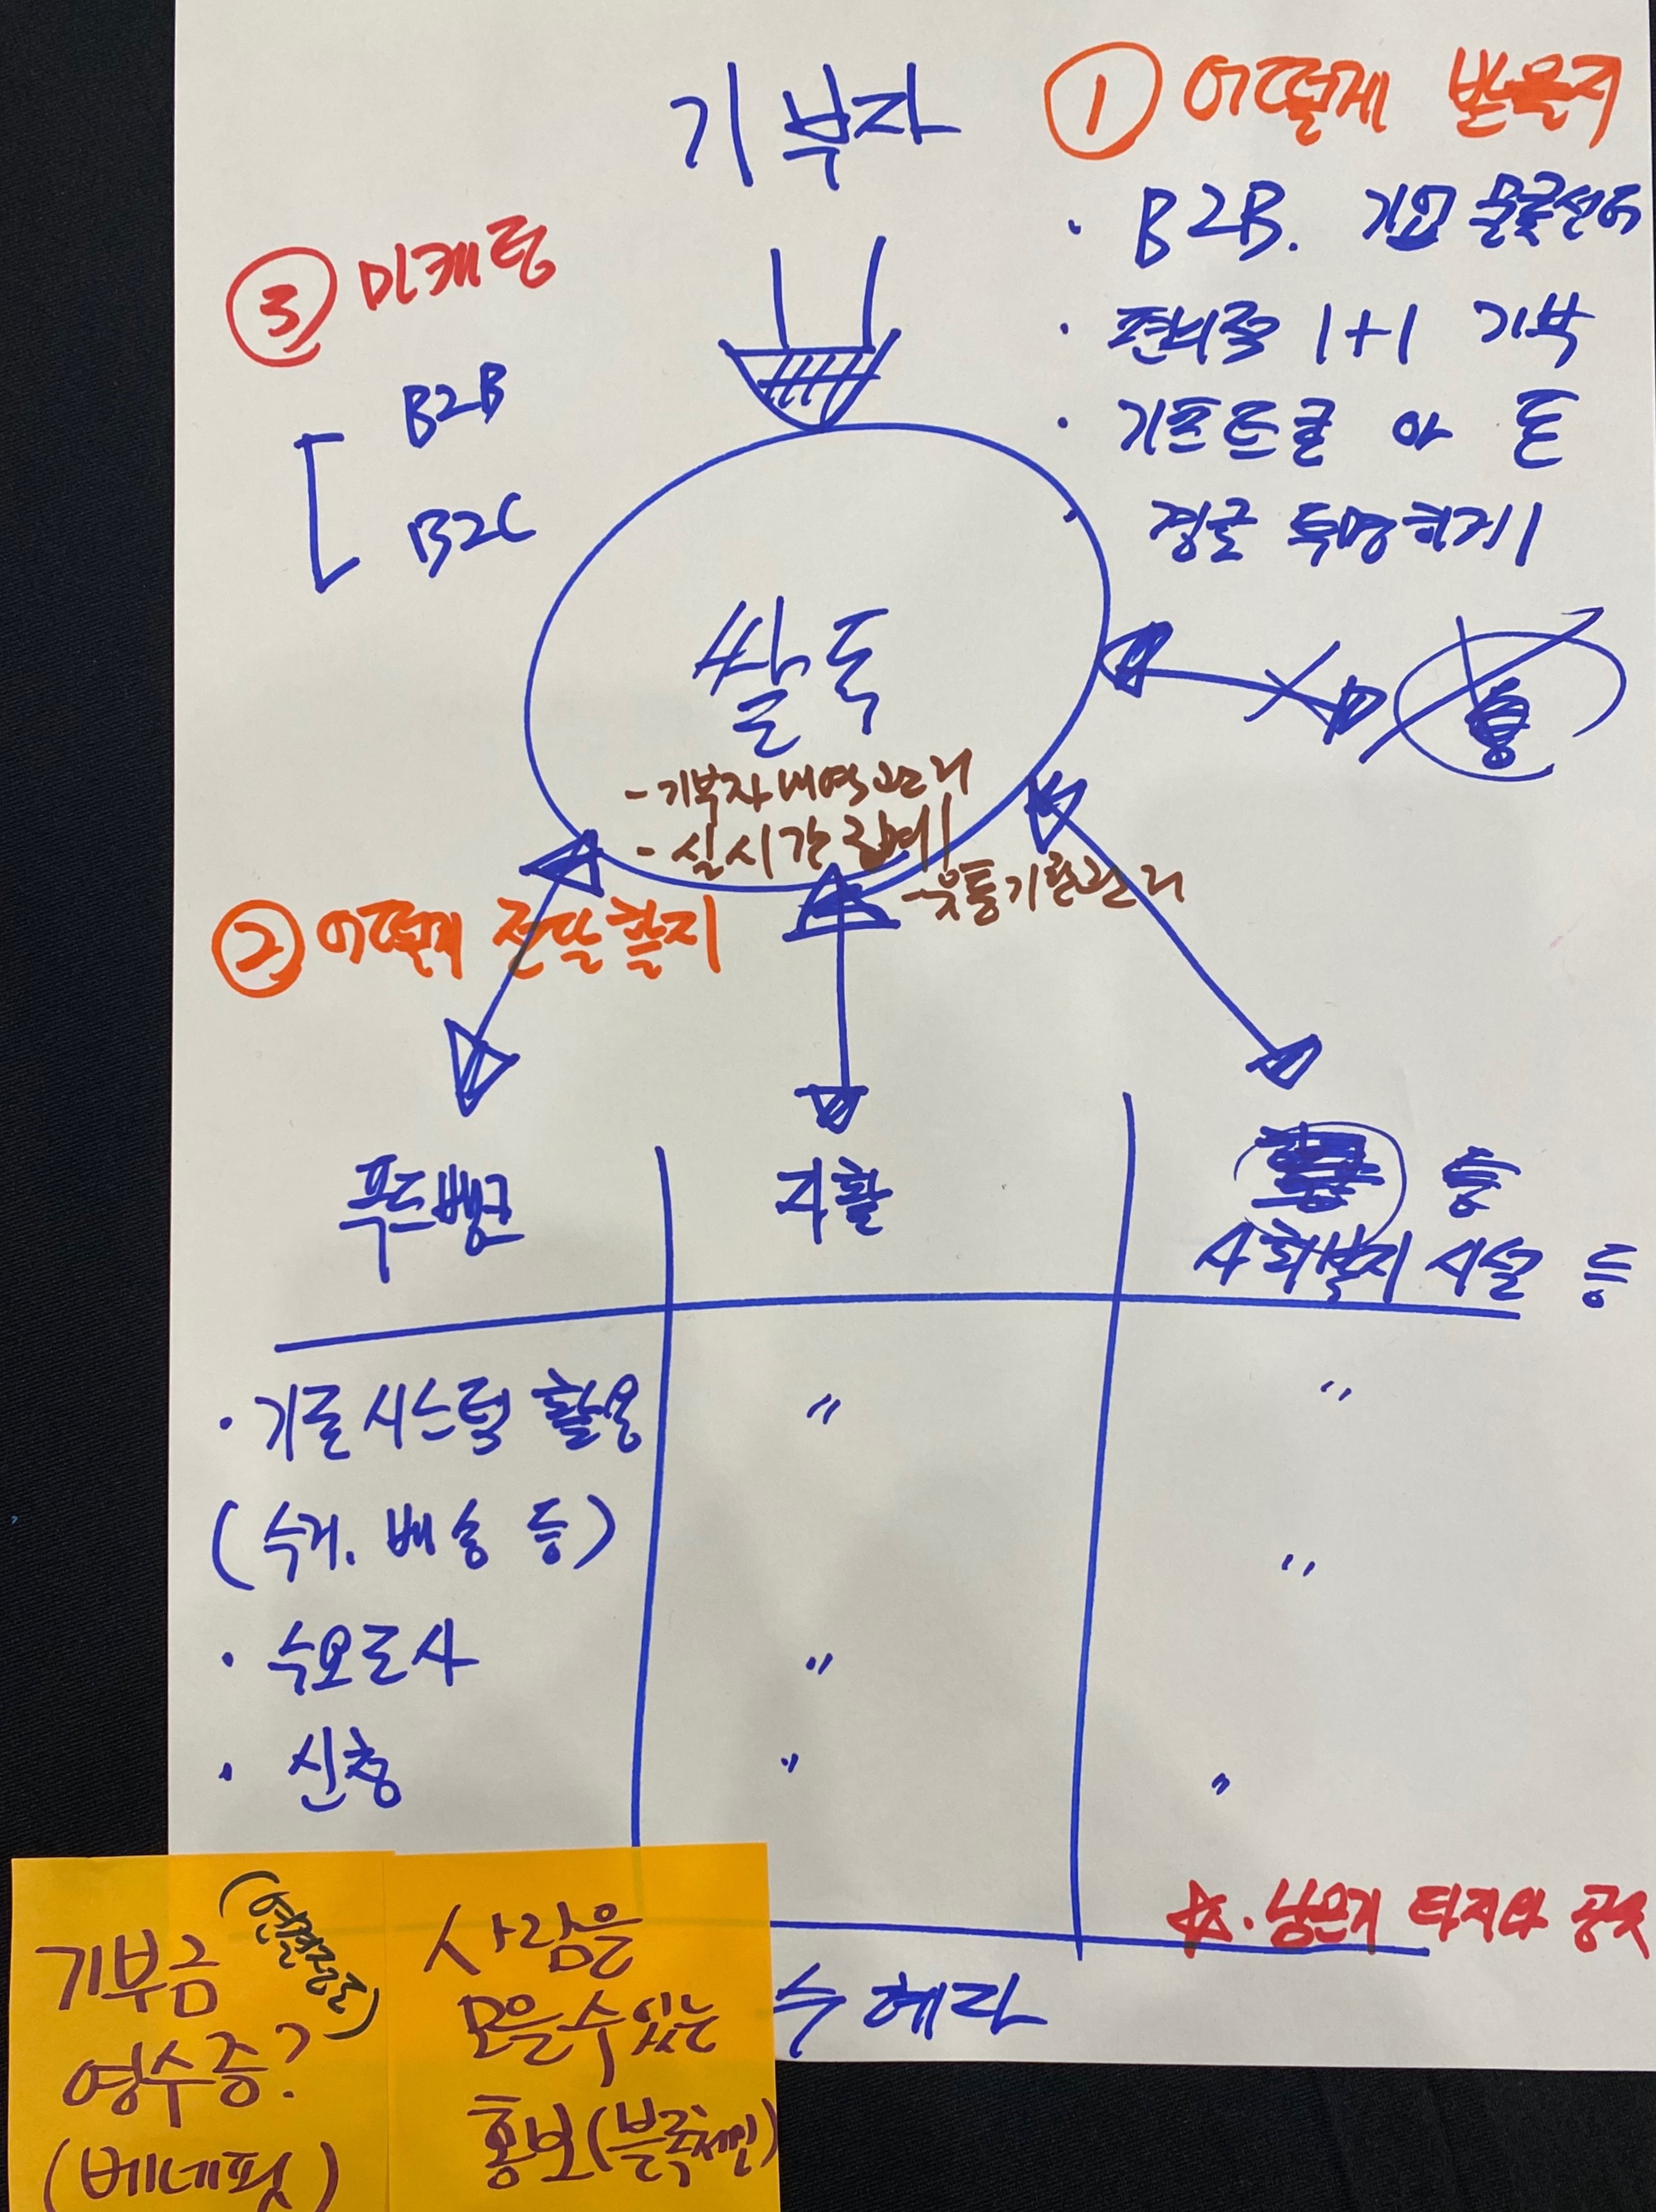 기부자
① 어떻게 받을지
· B2B. 기업 물품선정
· 편의점 1+1 기부
· 기프트콜 or 돈
정글 투명하게
③ 마케팅
B2B
B2C
쌀독
- 기부자 내역관리
- 실시간 집계
- 유통기한관리
② 어떻게 전달할지
푸드뱅크
자활
등
사회복지 시설 등
· 기존시스템 활용
"
"
(수거. 배송 등)
"
· 수요조사
"
· 신청
"
"
☆. 남은거 타지와 공유
수혜자
기부금
(연결중요)
영수증?
(베네핏)
사람을
모을수있는
홍보(블록체인)